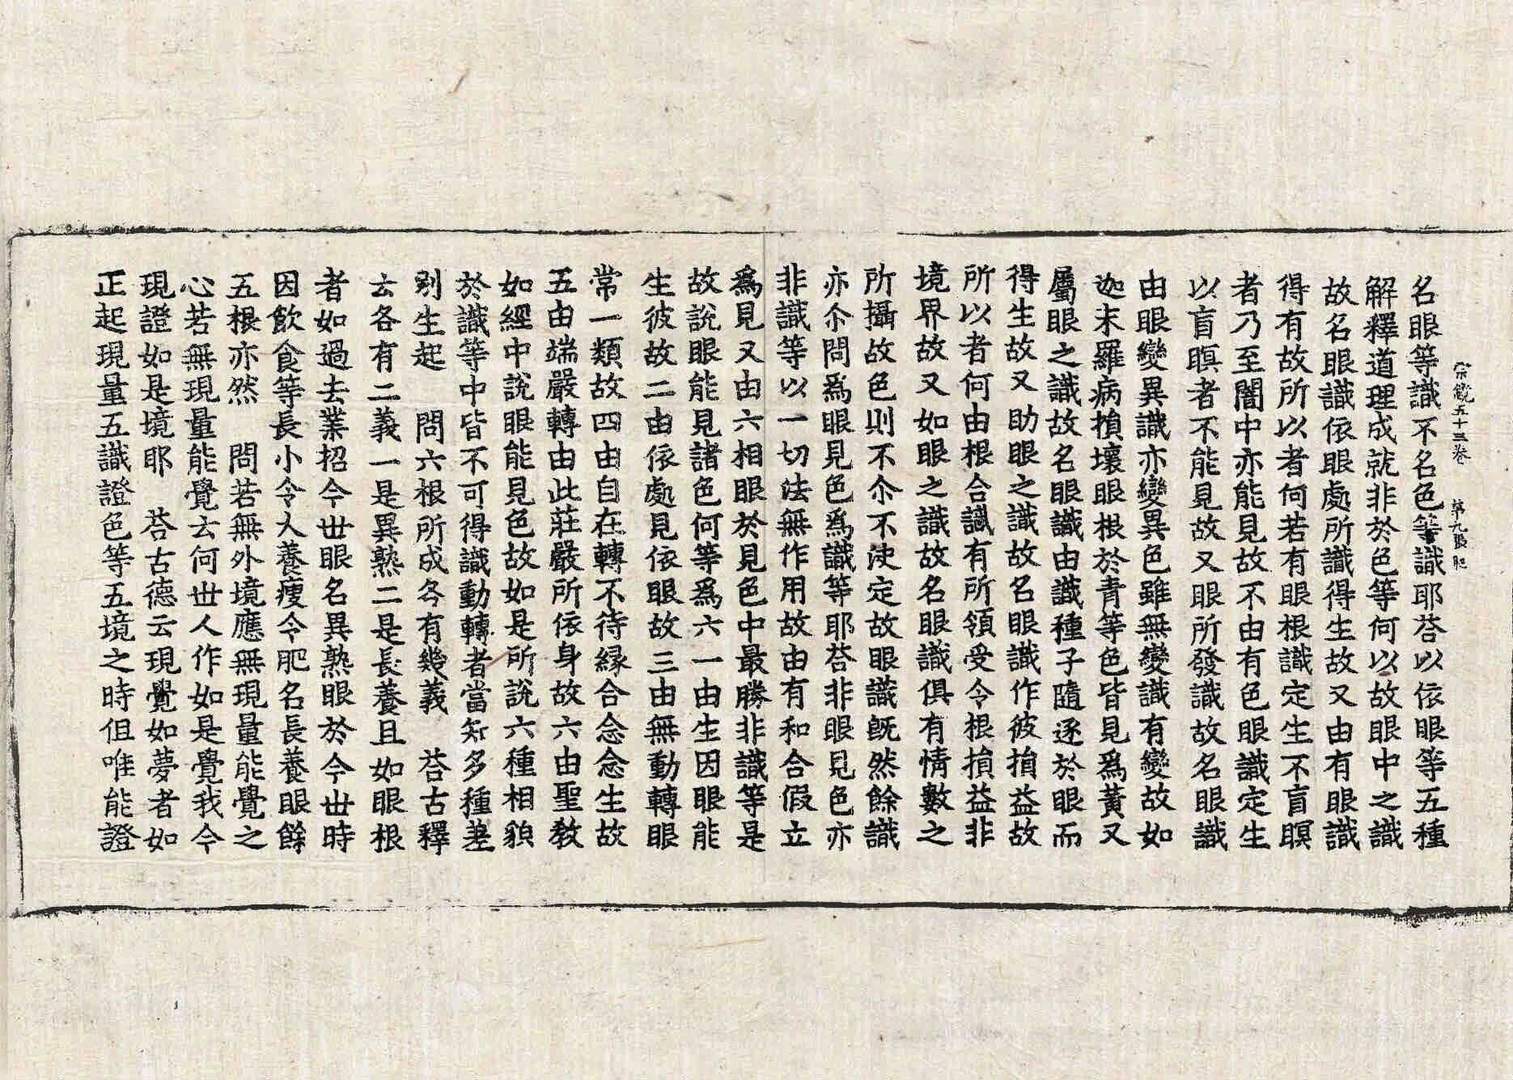 名眼等識不名色等識耶荅以依眼等五種
宗鏡五十三卷 第九張 肥
解釋道理成就非於色等何以故眼中之識
故名眼識依眼處所識得生故又由有眼識
得有故所以者何若有眼根識定生不盲瞑
者乃至闇中亦能見故不由有色眼識定生
以盲瞑者不能見故又眼所發識故名眼識
由眼變異識亦變異色雖無變識有變故如
迦末羅病損壞眼根於青等色皆見爲黃又
屬眼之識故名眼識由識種子隨逐於眼而
得生故又助眼之識故名眼識作彼損益故
所以者何由根合識有所領受令根損益非
境界故又如眼之識故名眼識俱有情數之
所攝故色則不尒不決定故眼識旣然餘識
亦尒問爲眼見色爲識等耶荅非眼見色亦
非識等以一切法無作用故由有和合假立
爲見又由六相眼於見色中最勝非識等是
故說眼能見諸色何等爲六一由生因眼能
生彼故二由依處見依眼故三由無動轉眼
常一類故四由自在轉不待緣合念念生故
五由端嚴轉由此莊嚴所依身故六由聖敎
如經中說眼能見色故如是所說六種相貌
於識等中皆不可得識動轉者當知多種差
別生起 問六根所成各有幾義 荅古釋
云各有二義一是異熟二是長養且如眼根
者如過去業招今世眼名異熟眼於今世時
因飮食等長小令大養瘦令肥名長養眼餘
五根亦然 問若無外境應無現量能覺之
心若無現量能覺云何世人作如是覺我今
現證如是境耶 荅古德云現覺如夢者如
正起現量五識證色等五境之時但唯能證